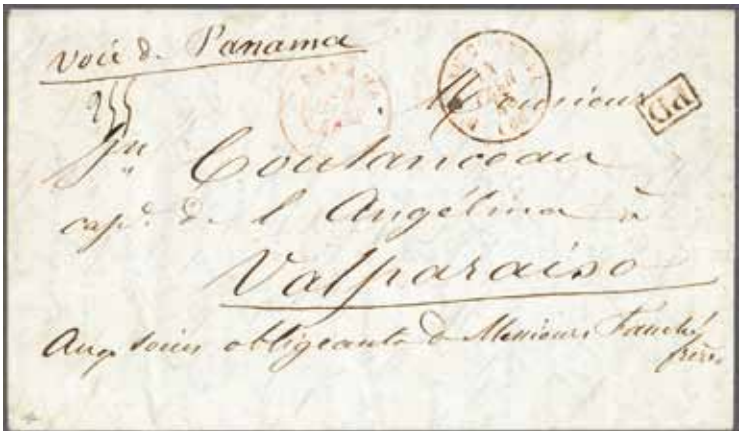 voie de Panama
PANAMA
Monsieur
PD
Jn Coutanceau
capne de l'Angélina à
Valparaiso
Aux soins obligeants de Messieurs frères